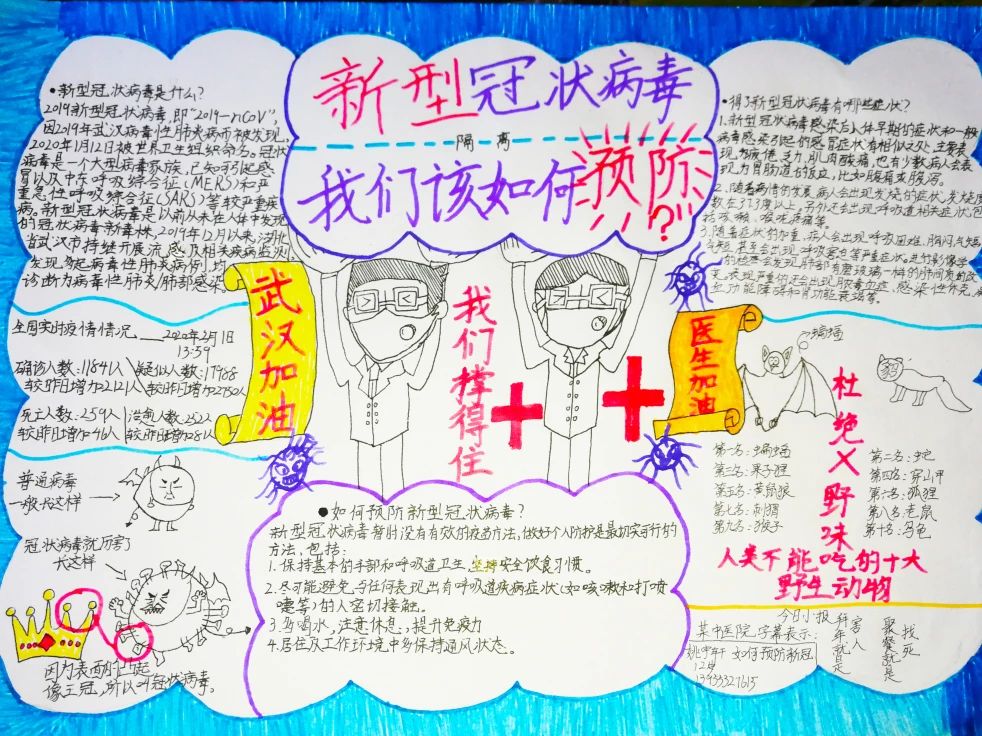 新型冠状病毒
隔离
我们该如何预防?
•新型冠状病毒是什么?
2019新型冠状病毒,即"2019-nCoV",
因2019年武汉病毒性肺炎病而被发现,
2020年1月12日被世界卫生组织命名。冠状
病毒是一个大型病毒家族,已知可引起感
冒以及中东呼吸综合征(MERS)和严
重急性呼吸综合征(SARS)等较严重疾
病。新型冠状病毒是以前从未在人体中发现
的冠状病毒新毒株。2019年12月以来,湖北
省武汉市持续开展流感及相关疾病监测,
发现多起病毒性肺炎病例,均
诊断为病毒性肺炎/肺部感染。
•得了新型冠状病毒有哪些症状?
1.新型冠状病毒感染后人体早期的症状和一般
病毒感染引起的感冒症状有相似之处,主要表
现为疲倦乏力,肌肉酸痛,也有少数病人会表
现为胃肠道的症状,比如腹痛或腹泻。
2.随着病情的发展,病人会出现发烧的症状,发烧度
数在37.3度以上,另外还会出现呼吸道相关症状,包
括咳嗽、咳痰、疼痛等。
3.随着症状的加重,病人会出现呼吸困难、胸闷气短
甚至会出现呼吸窘迫等严重症状。进行影像学
的检查会发现肺部有磨玻璃一样的肺间质的改
变,表现严重的还会出现脓毒血症,感染性休克,
功能障碍和肾功能衰竭等。
武汉加油
我们撑得住
医生加油
全国实时疫情情况—2020年2月1日
13:59
确诊人数:11841人 疑似人数:17988
较昨日增加2212人 较昨日增加2750人
死亡人数:259人 治愈人数:252人
较昨日增加46人 较昨日增加81人
普通病毒
一般长这样
冠状病毒就厉害了
长这样
因为表面的凸起
像王冠,所以叫冠状病毒。
•如何预防新型冠状病毒?
新型冠状病毒暂时没有有效的疫苗方法,做好个人防护是最切实可行的
方法,包括:
1.保持基本的手部和呼吸道卫生,坚持安全饮食习惯。
2.尽可能避免与任何表现出有呼吸道疾病症状(如咳嗽和打喷
嚏等)的人密切接触。
3.多喝水,注意休息,提升免疫力
4.居住及工作环境中多保持通风状态。
蝙蝠
豹
杜绝×野味
第一名:蝙蝠
第二名:蛇
第三名:果子狸
第四名:穿山甲
第五名:黄鼠狼
第六名:狐狸
第七名:刺猬
第八名:老鼠
第九名:猴子
第十名:乌龟
人类不能吃的十大
野生动物
今日小报
某中医院字幕表示:
如何预防新冠
拜年就是害人
聚餐就是找死